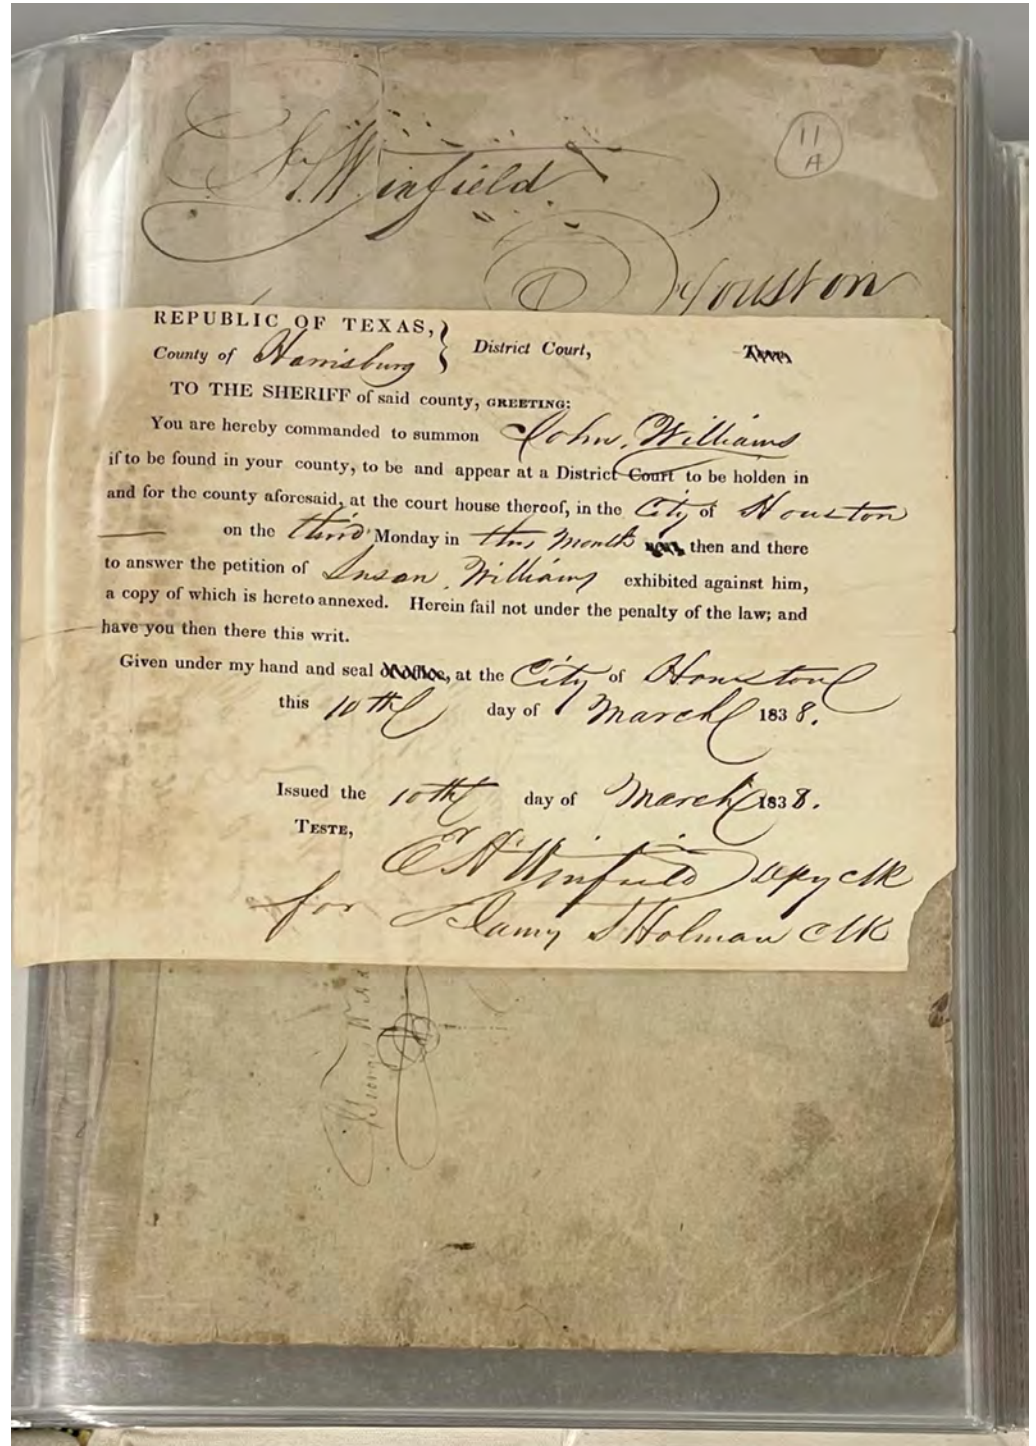 Winfield
11
A
Houston
REPUBLIC OF TEXAS,
County of Harrisburg } District Court,
TO THE SHERIFF of said county, GREETING:
You are hereby commanded to summon John Williams
if to be found in your county, to be and appear at a District Court to be holden in
and for the county aforesaid, at the court house thereof, in the City of Houston
on the third Monday in this Month then and there
to answer the petition of Susan Williams exhibited against him,
a copy of which is hereto annexed. Herein fail not under the penalty of the law; and
have you then there this writ.
Given under my hand and seal of office, at the City of Houston
this 10th day of March 1838.
Issued the 10th day of March 1838.
TESTE,
E H Winfield Dpy Clk
for James S Holman Clk